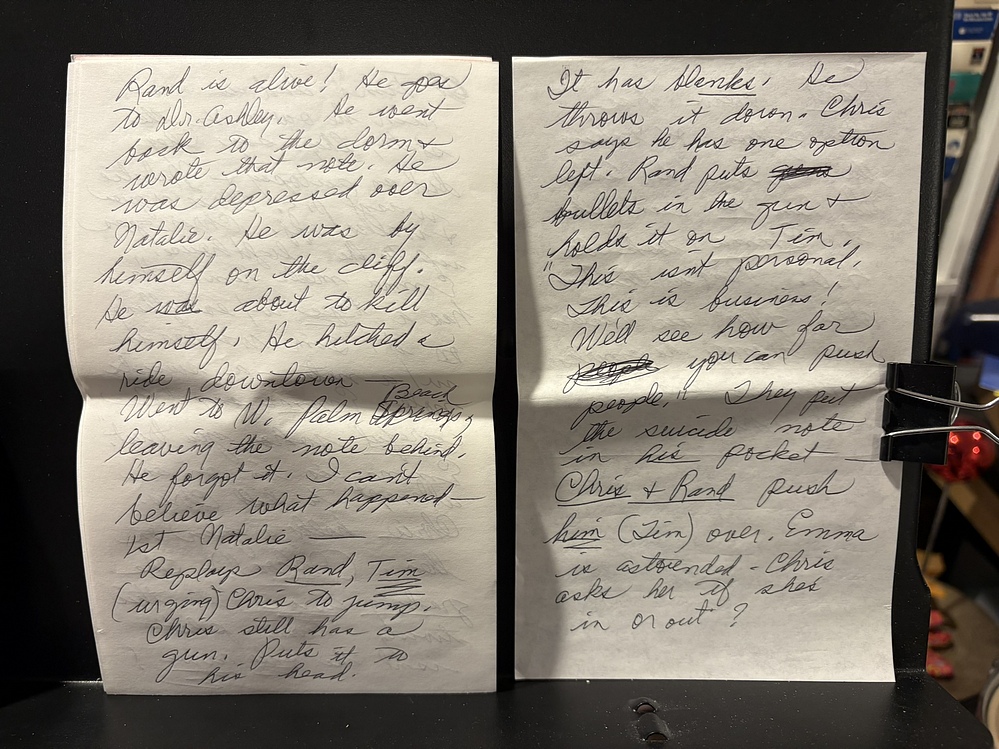 Rand is alive! He goes
to Dr. Ashley. He went
back to the dorm &
wrote that note. He
was depressed over
Natalie. He was by
himself on the cliff.
He was about to kill
himself. He hitched a
ride downtown —
Beach
Went to W. Palm Springs,
leaving the note behind.
He forgot it. I can't
believe what happened —
1st Natalie —
Replays Rand, Tim
(urging) Chris to jump.
Chris still has a
gun. Puts it to
his head.
It has blanks. He
throws it down. Chris
says he has one option
left. Rand puts
bullets in the gun &
holds it on Tim.
"This isn't personal.
This is business!
We'll see how far
people you can push
people." They put
the suicide note
in his pocket —
Chris & Rand push
him (Tim) over. Emma
is astounded - Chris
asks her if shes
in or out?